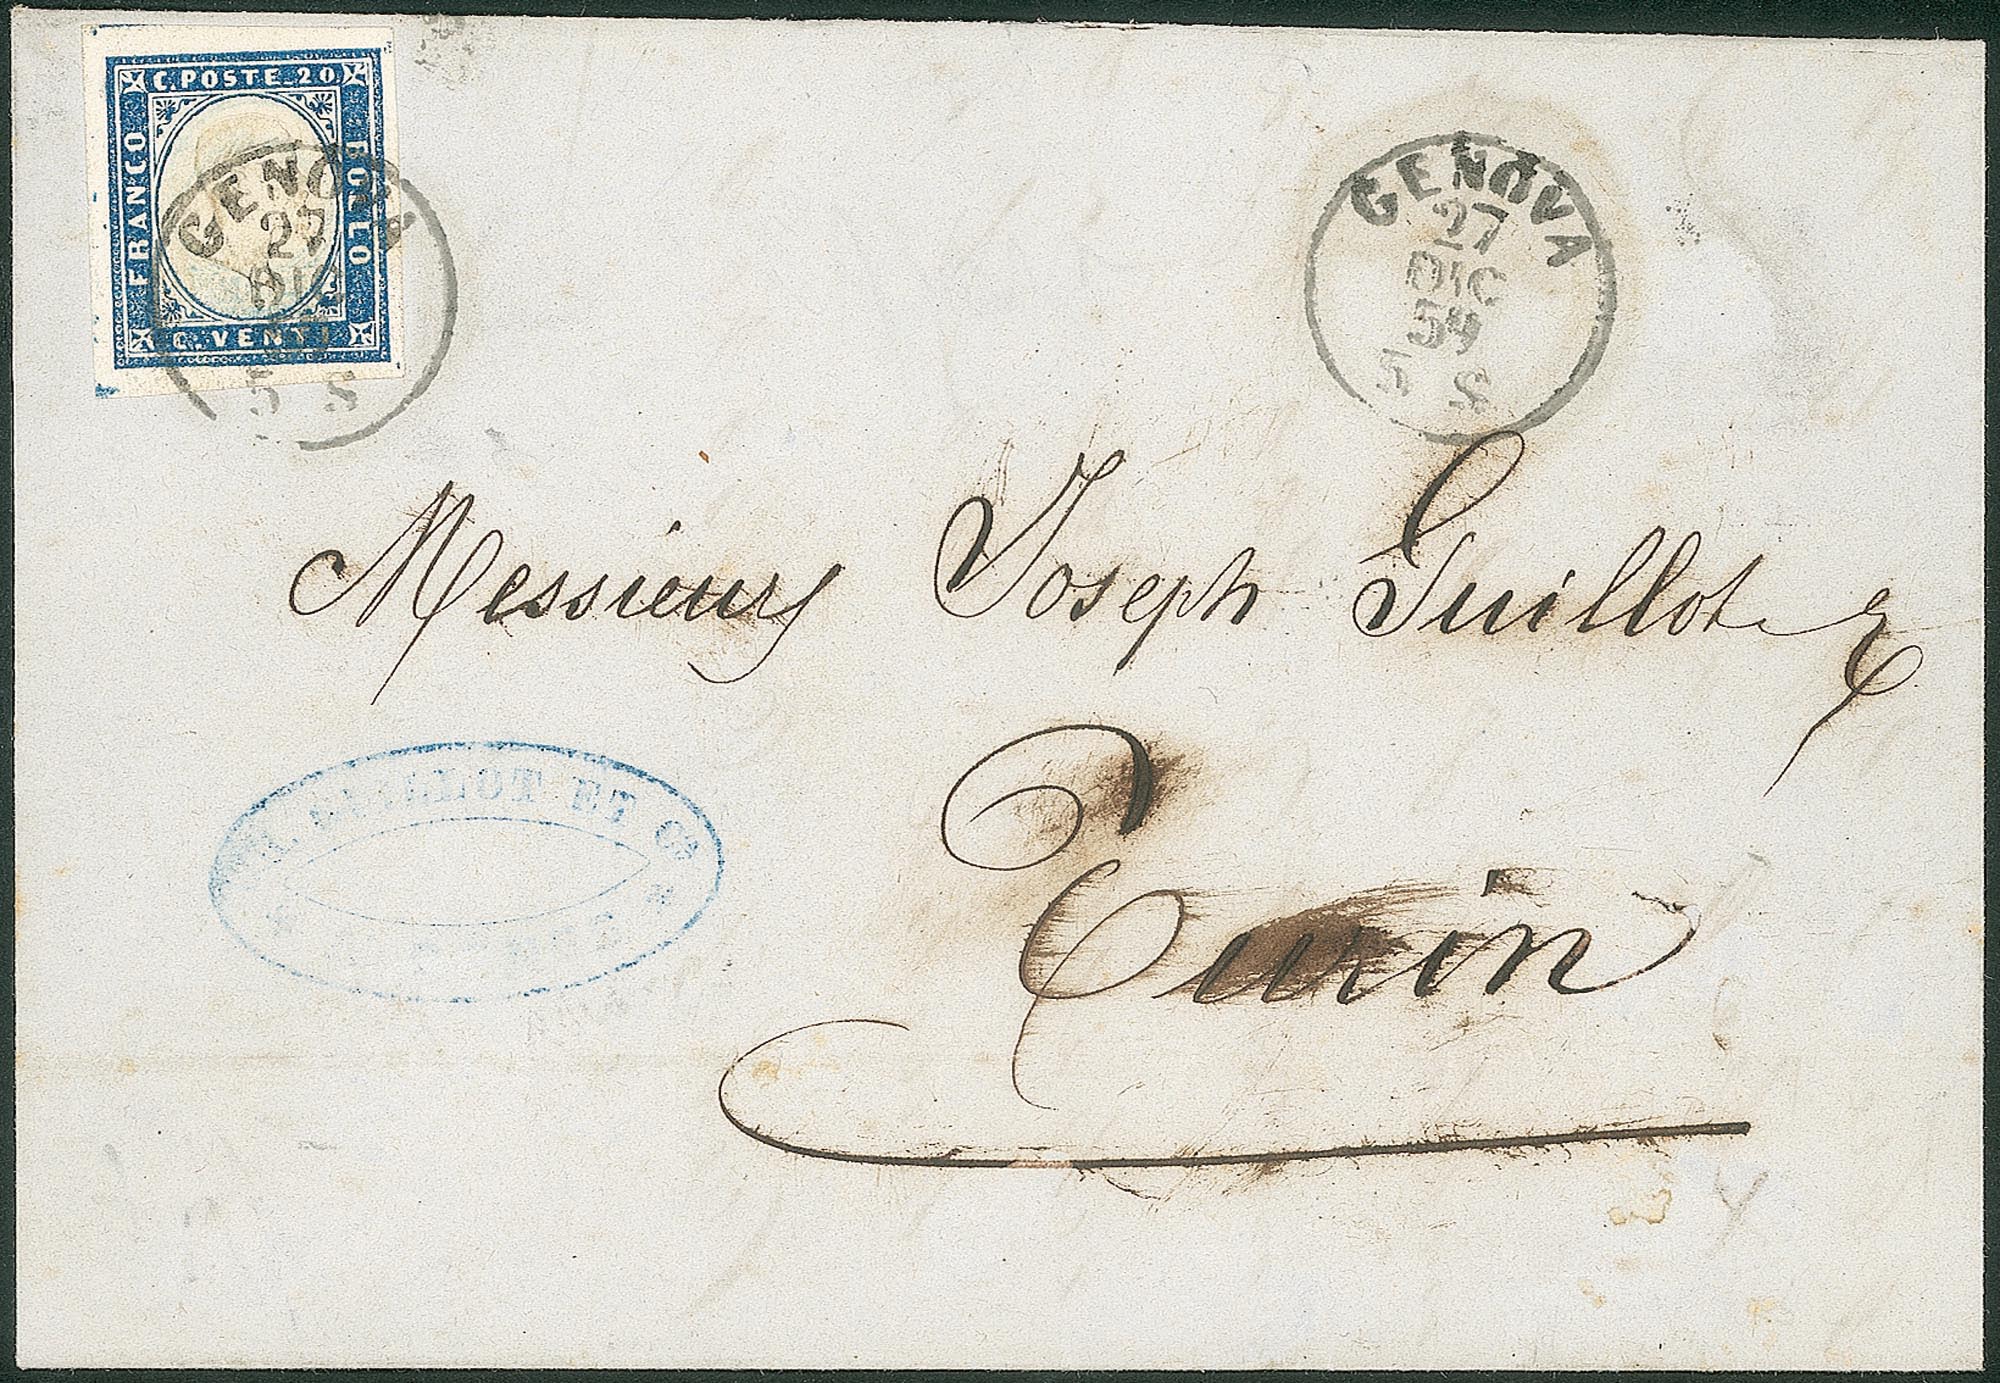 C. POSTE. 20.
FRANCO
BOLLO
C. VENTI
GENOVA
27
DIC
5 S
GENOVA
27
DIC
59
5 S
Messieurs Joseph Guillot &
Turin
GUILLOT ET Cᵉ